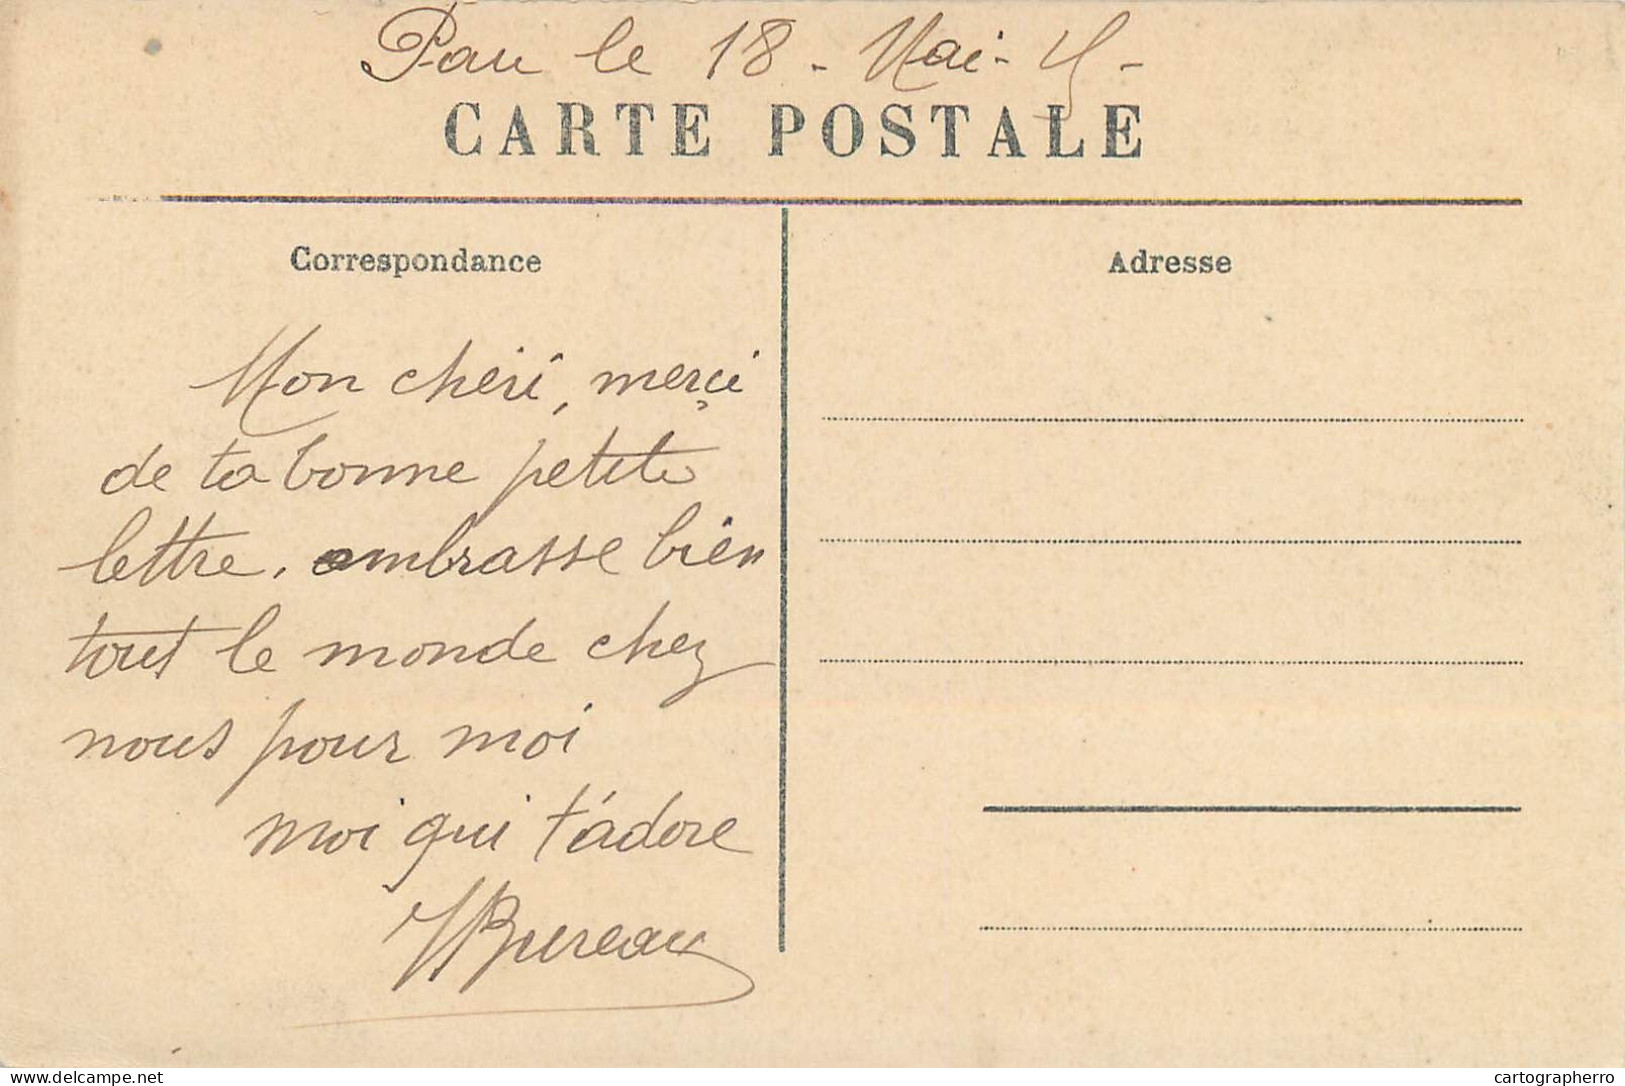 Pau le 18 - Mai -
CARTE POSTALE
Correspondance
Adresse
Mon chéri, merçi
de ta bonne petite
lettre. embrasse bien
tout le monde chez
nous pour moi
moi qui t'adore
Bureau
Delcampe.net
cartographerro